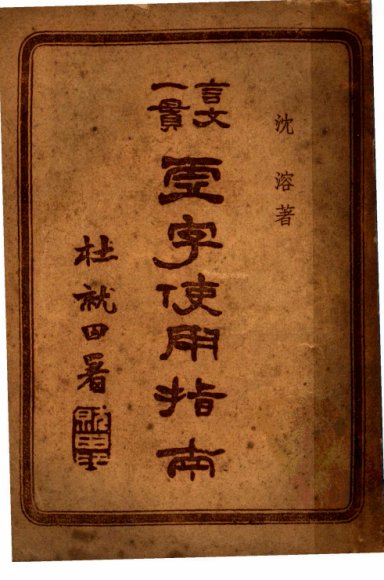 沈溶著
言文
一貫
虛字使用指南
杜就田署